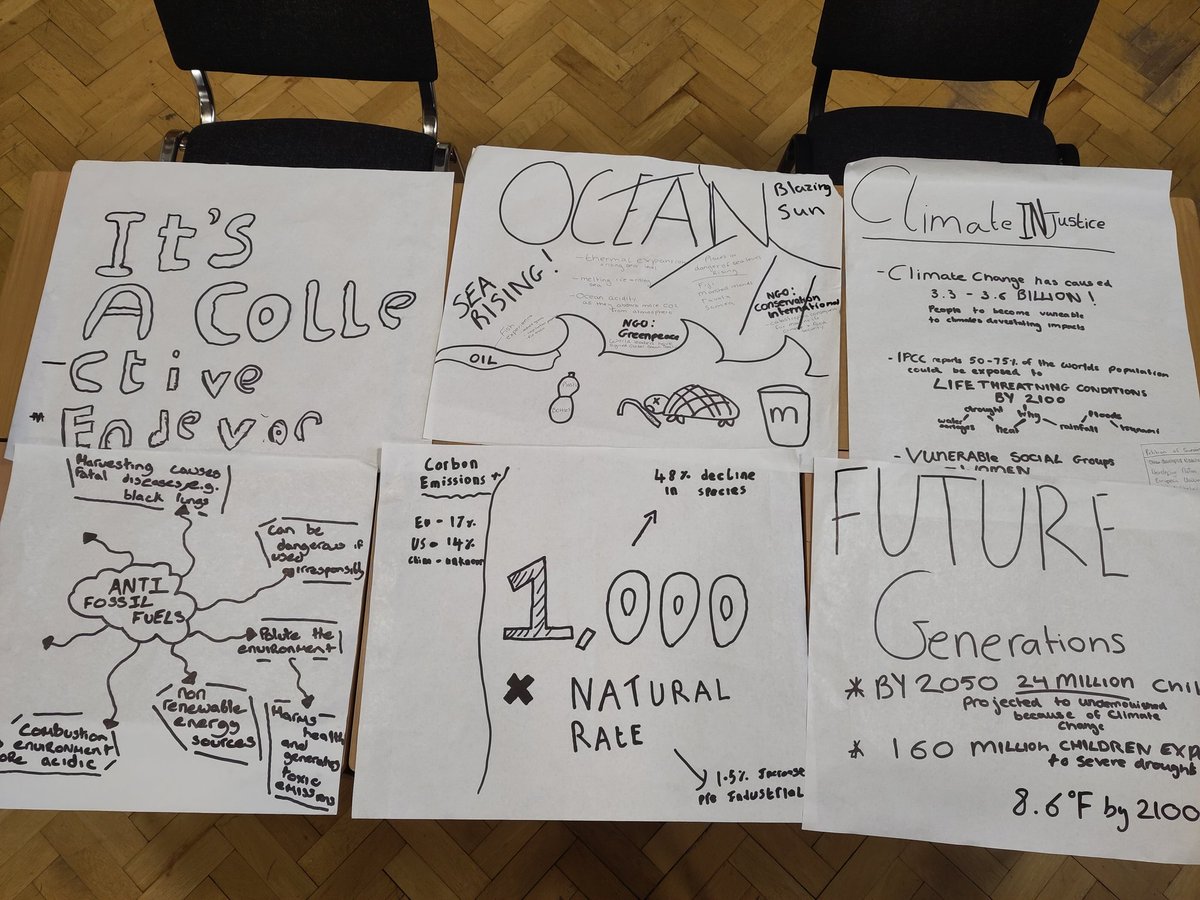 It's
A Colle
-ctive
* Endevor
OCEAN
Blazing
Sun
SEA
RISING!
- thermal expansion
- melting ice
- Ocean acidity
from atmosphere
Places in
danger of sea levels
Rising
Fiji
NGO:
Greenpeace
NGO:
Conservation
International
OIL
m
Climate INJustice
- Climate Change has caused
3.3 - 3.6 BILLION!
People to become vunerable
to climates devastating impacts
- IPCC reports 50-75% of the worlds population
could be exposed to
LIFE THREATNING CONDITIONS
BY 2100
drought
why
floods
water
heat
rainfall
- VUNERABLE SOCIAL GROUPS
- WOMEN
Harvesting causes
Fatal diseases e.g.
black lungs
Can be
dangerous if
used
irrisponsibly
ANTI
FOSSIL
FUELS
Polute the
environment
non
renewable
energy
sources
Harms
health
and
generates
toxic
emissions
Combustion
environment
ore acidic
Carbon
Emissions
EU - 17%
US - 14%
48% decline
in species
1,000
x NATURAL
RATE
1.5% Increase
Pre Industrial
FUTURE
Generations
* BY 2050 24 MILLION Chil
projected to undernourished
because of Climate
Change
* 160 MILLION CHILDREN EXP
to severe drought
8.6°F by 2100